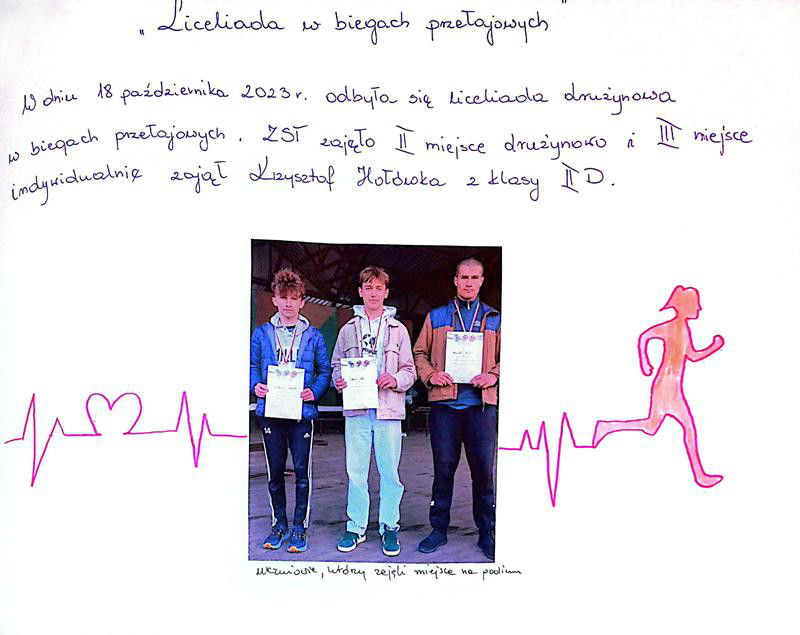 „Liceliada w biegach przełajowych”
W dniu 18 października 2023 r. odbyła się liceliada drużynowa
w biegach przełajowych. ZST zajęło II miejsce drużynowo i III miejsce
indywidualnie zajął Krzysztof Hołówka z klasy II D.
14
uczniowie, którzy zajęli miejsce na podium